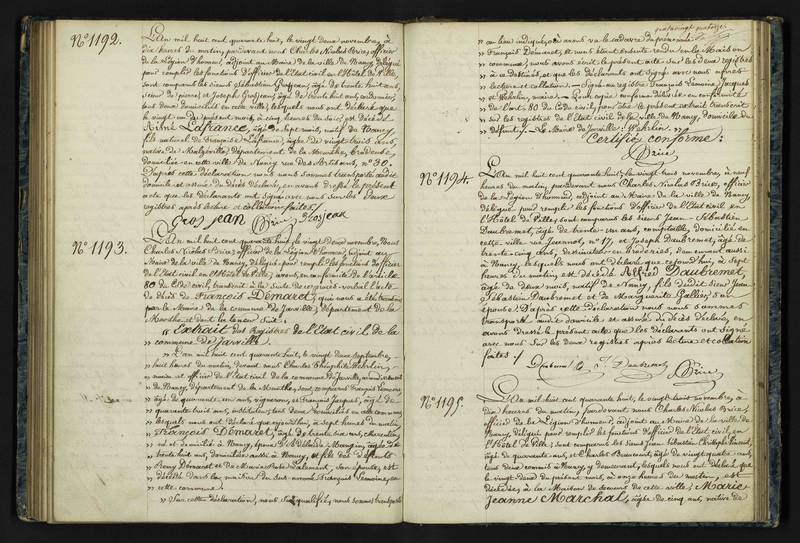 N° 1192.
L'an mil huit cent quarante huit, le vingt deux novembre, à
dix heures du matin, pardevant nous Charles Nicolas Brice, officier
de la Légion d'honneur, adjoint au Maire de la ville de Nancy, délégué
pour remplir les fonctions d'officier de l'État civil en l'Hôtel de Ville,
sont comparus les sieurs Sébastien Grosjean, âgé de trente huit ans,
et Joseph Grosjean, âgé de trente huit ans, cordonnier,
tous deux domiciliés en cette ville, lesquels nous ont déclaré que
le vingt un du présent mois, à cinq heures du soir, est décédé
Aimé Lafrance, âgé de sept mois, natif de Nancy,
fils naturel de Françoise Lafrance, âgée de vingt trois ans,
native de département de la Meurthe, brodeuse,
domiciliée en cette ville de Nancy rue des Artisans, n° 30.
D'après cette déclaration nous nous sommes transporté audit
domicile et assuré du décès déclaré, en avons dressé le présent
acte que les déclarants ont signé avec nous sur les deux
registres après lecture et collation faites./.
Gros jean Brice Grosjean
N° 1193.
L'an mil huit cent quarante huit, le vingt deux novembre, Nous
Charles Nicolas Brice, officier de la Légion d'honneur, adjoint au
Maire de la ville de Nancy, délégué pour remplir les fonctions d'officier
de l'État civil en l'Hôtel de Ville, avons, en conformité de l'article
80 du Code civil, transcrit à la suite des registres l'acte
de décès de François Démaret, qui nous a été transmis
par le Maire de la commune de Jarville, département de la
Meurthe et dont la teneur suit:
" Extrait des Registres de l'État civil de la
" commune de Jarville.
" L'an mil huit cent quarante huit, le vingt deux septembre,
" huit heures du matin, devant nous Charles Théophile Welche,
" maire et officier de l'État civil de la commune de Jarville,
" de Nancy, département de la Meurthe, sont comparus François Lemoine
" âgé de quarante ans, vigneron, et François Jacques, âgé de
" quarante huit ans, instituteur, tous deux domiciliés en cette commune,
" lesquels nous ont déclaré que aujourd'hui, à sept heures du matin,
" François Démaret, âgé de trente six ans,
" né et domicilié à Nancy, époux de Mangin, âgée de
" trente huit ans, domiciliée aussi à Nancy, et fils des défunts
" Remy Démaret et de Marie son épouse, est
" décédé dans la maison du sus-nommé François Lemoine, en
" cette commune.
" Sur cette déclaration, nous soussigné, nous sommes transporté
quatrevingt quatorze.
" au lieu indiqué, où avons vu le cadavre du prénommé
" François Démaret, et nous étant ensuite rendu en la Maison
" commune, nous avons écrit le présent acte sur les deux registres
" à ce destinés, et que les déclarants ont signé avec nous après
" lecture et collation. Signé au registre: François Lemoine, Jacques
" et Welche, maire. Pour copie conforme délivrée en conformité
" de l'art. 80 du Code civil, pour être le présent extrait transcrit
" sur les registres de l'État civil de la ville de Nancy, domicile du
" défunt. Le Maire de Jarville: Welche. "
Certifié conforme:
Brice
N° 1194.
L'an mil huit cent quarante huit, le vingt trois novembre, à neuf
heures du matin, pardevant nous Charles Nicolas Brice, officier
de la Légion d'honneur, adjoint au Maire de la ville de Nancy,
délégué pour remplir les fonctions d'officier de l'État civil en
l'Hôtel de Ville, sont comparus les sieurs Jean Sébastien
Daubremet, âgé de trente un ans, comptable, domicilié en
cette ville rue Jeannot, n° 17, et Joseph Daubremet, âgé de
trente cinq ans, dessinateur en broderies, demeurant aussi
à Nancy, lesquels nous ont déclaré que cejourd'hui, à sept
heures du matin, est décédé Alfred Daubremet,
âgé de deux mois, natif de Nancy, fils dudit sieur Jean
Sébastien Daubremet et de Marguerite Gallier, son
épouse. D'après cette déclaration nous nous sommes
transporté audit domicile et assuré du décès déclaré, en
avons dressé le présent acte que les déclarants ont signé
avec nous sur les deux registres après lecture et collation
faites./.
Daubremet J. Daubremet Brice
N° 1195.
L'an mil huit cent quarante huit, le vingt trois novembre, à
dix heures du matin, pardevant nous Charles Nicolas Brice,
officier de la Légion d'honneur, adjoint au Maire de la ville de
Nancy, délégué pour remplir les fonctions d'officier de l'État civil en
l'Hôtel de Ville, sont comparus les sieurs Jean Sébastien Christophe
âgé de quarante ans, et Charles Beaucourt, âgé de vingt quatre ans,
tous deux commis à Nancy y demeurant, lesquels nous ont déclaré que
le vingt deux du présent mois, à onze heures du matin, est
décédée, à la Maison de Secours de cette ville, Marie
Jeanne Marchal, âgée de cinq ans, native de